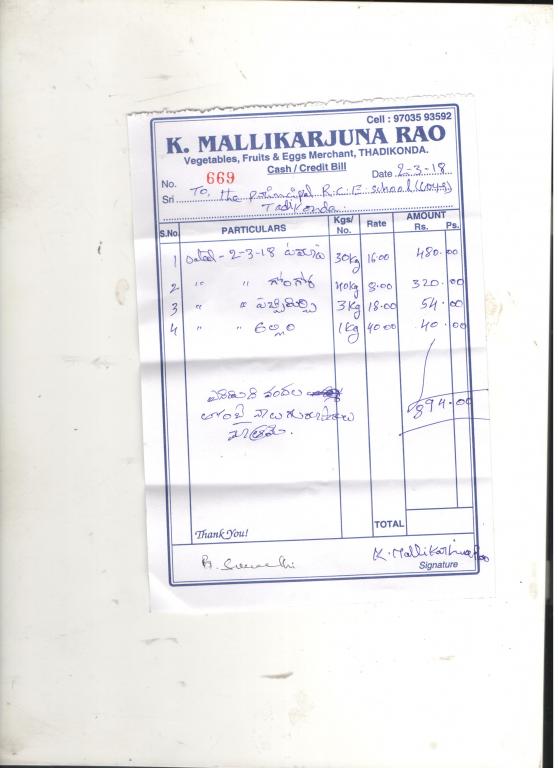 Cell : 97035 93592
K. MALLIKARJUNA RAO
Vegetables, Fruits & Eggs Merchant, THADIKONDA.
Cash / Credit Bill
No. 669 Date 2-3-18
Sri To, the Principal R.C.E. School (Boys)
Tadikonda
S.No. PARTICULARS Kgs/ No. Rate AMOUNT Rs. Ps.
1 Dated - 2-3-18 30kg 16.00 480.00
2 " " గోంగూర 40kg 8.00 320.00
3 " " పచ్చిమిర్చి 3kg 18.00 54.00
4 " " అల్లం 1kg 40.00 40.00
894.00
మాత్రమే.
TOTAL
Thank You!
K. Mallikarjuna Rao
Signature